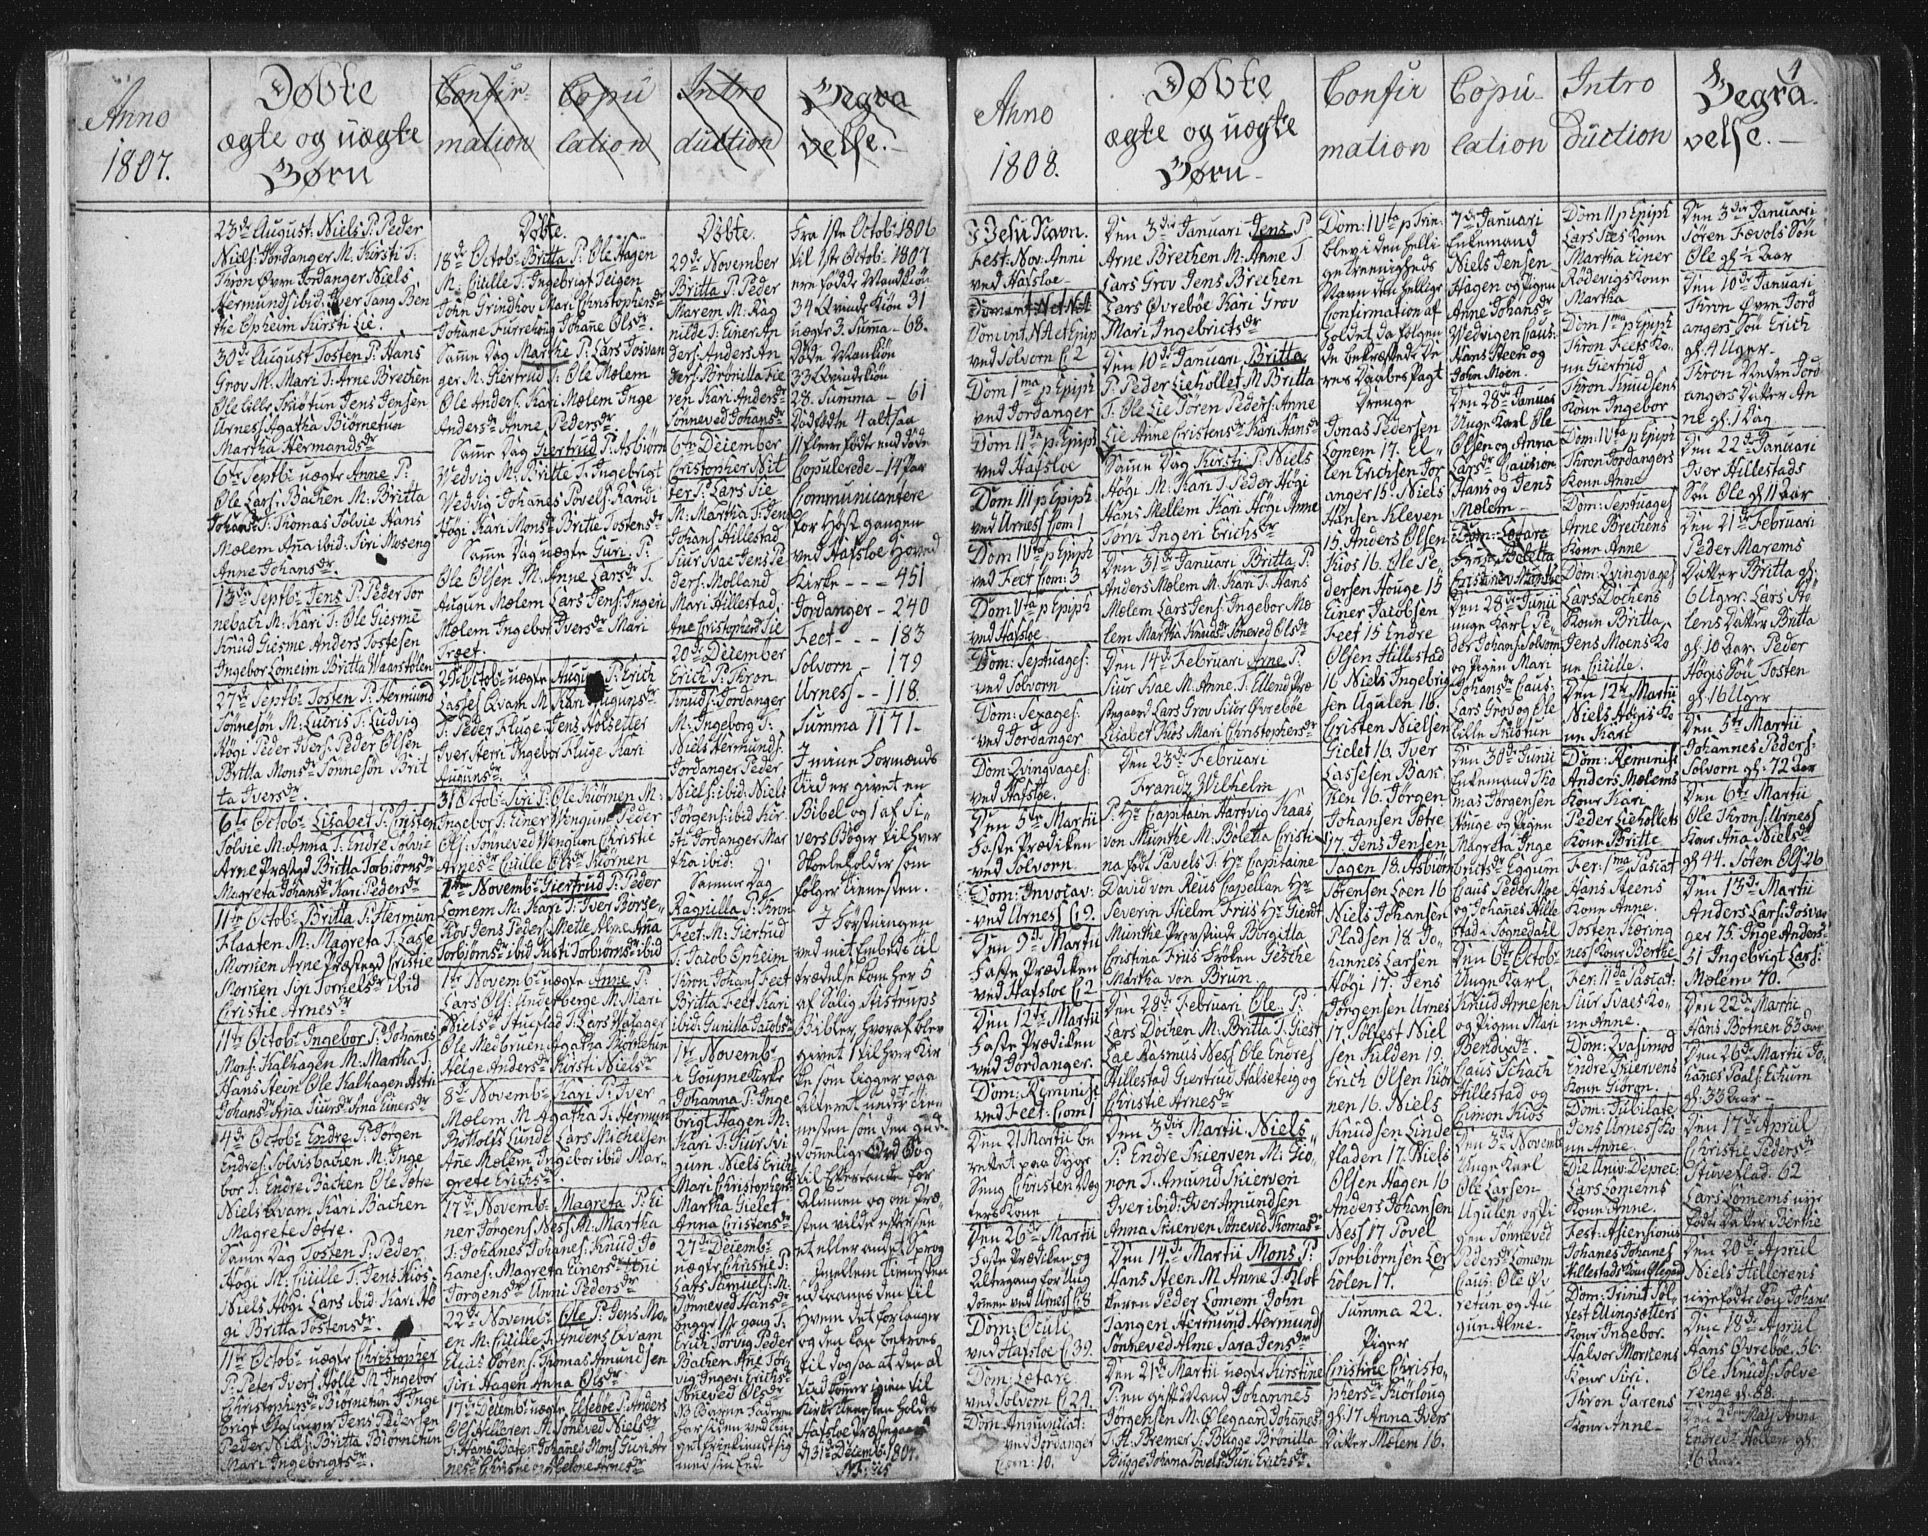 Anno
1807.
Døbte
ægte og uægte
Børn
Confir-
mation
Copu
lation
Intro
duction
Begra
velse.
23de August: Niels P: Peder
Niels: Jordanger M. Kirsti T:
Thron Øvre Jordanger Niels
Hermunds ibid. Iver Tang Ben
the Opheim Kirsti Lie.
30de August Tosten P: Hans
Grov M. Mari T: Arne Brechen
Ole Lille Jens Jensen
Urnes Agatha Biørnetun
Martha Hermandsdr
6te Septbr uægte Anne P:
Ole Lars: Bachen M: Britta
Johansdr T: Thomas Solvie Hans
Mælem Ana ibid: Siri Moseng
Anne Johansdr.
13de Septbr Jens P: Peder Tor
nebach M: Kari T: Ole Giesme
Knud Giesme Anders Tostesen
Ingebor Lomeim Britta
27de Septbr Tosten P: Hermund
Sønnesøn M: T: Ludvig
Høgi Peder Ivers: Peder Olsen
Britta Monsdr Sønnesøn Brit
ta Iversdr.
6te Octobr Lisabet P: Christen
Solvie M: Anna T: Endre Solvie
Arne Præstegrd Britta Torbiørnsdr
Magreta Johansdr Kari Pedersdr
11te Octobr Britta P: Hermun
Flaaten M: Magreta T: Lasse
Morken Arne Præstegrd Cristie
Morken ibid
Christie Arnesdr
11te Octobr Ingebor P: Johanes
Mons: Kalhagen M: Martha T:
Hans Stein Ole Kalhagen
Johans: Ana Siursdr Ana Einersdr
4de Octobr Endre P: Jørgen
Endres: Solvisbachen M: Inge
bor T: Endre Bachen Ole Sætre
Niels Qvam Kari Bachen
Magrete Sætre.
Same Dag Tosten P: Peder
Høgi M: Cicille T: Jens Kios
Niels Høgi Lars ibid: Kari Hø
gi Britta Tostensdr.
11te Octobr uægte Christopher
P: Peter Ivers: Molle M: Ingebor
Christophersdr Biørnetun T: Inge
Jens Pedersen
Peder Niels: Britta Biørnetun
Mari Ingebrigtsdr.
Døbte.
18de Octobr Britta P: Ole Hagen
M: Cicille T: Ingebrigt Teigen
John Grindsov Mari Christophersdr
Johane Furrehoug Johane Olsdr.
Same Dag Marthe P: Lars Josvan
ger M: Giertrud T: Ole Mælem
Ole Anders: Kari Mælem Inge
Andersdr Anne Pedersdr
Same Dag Giertrud P: Asbiørn
Vedvig M: Britte T: Ingebrigt
Vedvig Johanes Povels: Randi
Høgi Kari Monsdr Britte Tostensdr
Same Dag uægte Guri P:
Ole Olsen M: Anne Larsdr T.
Augun Mælem Lars Jens: Ingeri
Mælem Ingebor Iversdr Mari
Træet.
25de Octobr uægte Augun P: Erich
Lasses: Qvam M: Kari Augunsdr
T: Peder Fluge Jens Holsetter
Iver Herri Ingebor Fluge Kari
Augunsdr.
31 Octobr Siri P: Ole Kiørnen M:
Ingebor T: Einer Wengum Peder
Ols: Sønneved Wengum Christie
Arnesdr Cicille Olsdr Kiørnen
1ste Novembr Giertrud P: Peder
Lomem M: Kari T: Iver Borse-
Kios Jens Peders: Melle Alme Ana
Torbiørnsdr ibid Kisti Torbiørnsdr ibid
1te Novembr uægte Anne P:
Lars Ols: Underberge M: Mari
Nielsdr Stueflød T: Lars Hafager
Ole Medbruen Agatha Biørnetun
Helge Andersdr Kirsti Nielsdr
8de Novembr Kari P: Iver
Mælem M: Agatha T: Hermun
Bottolfs Lunde Lars Michelsen
Ane Mælem Ingebor ibid Mar-
grete Erichsdr.
17de Novembr Magreta P: Ei
ner Jørgens: Ness M: Martha
T: Johanes Johanes: Knud Jo
hanes: Magreta Einersdr
Jørgensdr Anni Pedersdr
22de Novembr Ole P: Jens Mo-
en M: Cicille T: Anders Qvam
Elias Sørens: Thomas Amundsen
Siri Hagen Anna Olsdr
17de Decembr uægte Elsebe P: Anders
Ols: Hilleren M: Sønneved Nielsdr
T: Hans Johanes Mons:
nesdr Christie Arnesdr
Døbte.
29de November
Britta P: Peder
Marem M: Rag
nilde T: Einer An
ders: Anders An
ders: Brønilla Fie
ren Kari Anders-
Sønneved Johansdr
6te December
Christopher Nit
ter P: Lars Lie
M: Martha T: Jens
Johans: Hillestad
Siur Svae Jens Pe
ders: Molland
Mari Hillestad.
Ane Christophersdr Lie
20de December
Erich P: Thron
Knuds: Jordanger
M: Ingeborg T:
Niels Hermunds:
Jordanger Peder
Niels: ibid: Niels
Jørgens: ibid Kir
sti Jordanger Mar
tha ibid:
Same Dag
Ragnilla P: Thron
Feet M: Giertrud
T: Jacob Opheim
Thron Johans: Feet
Britta Feet Kari
ibid. Gunilla Jacobsdr
1te Novembr
i Goupne Kirke
Johanna P: Inge
brigt Hagen M:
Kari T: Siur Svi
gum Niels Erich
Mari Christophersdr
Martha Gielet
Anna Christensdr
27de Decembr
uægte Christie P:
Lars Samuels: M:
Sønneved Hansdr
begge 1ste gang T:
Erich Tørvig Peder
Bachen Ane Tør
vig Ingeri Erichsdr
Sønneved Olsdr
Fra 1ste Octob: 1806
til 1ste Octob: 1807
ere fødde Mankiøn
34 Qvindekiøn 31
uægte 3. Summa - 68.
Døde Mankiøn
33 Qvindekiøn
28. Summa - 61
Dødfødte 4 altsaa
11 flere fødte end døde
Copulerede - 14 Par
Communicantere
for Høst gangen
ved Hafsloe Hoved
Kirke - - - 451
Jordanger - 240
Feet - - 183
Solvorn - 179
Urness - - 118
Summa 1171
I mine Formænds
tid er givet en
Bibel og 1 af Si
vers Bøger til hver
Skoleholder som
følger Tienesten.
I Førstningen
ved mit Embeds til
trædelse kom her 5
af Salig Stistrups
Bibler, hvoraf blev
givet 1 til hver Kir
ke som ligger paa
Alteret under Tien
nesten som den gud
dommelige Ord Bog
til Efterretn: for
Almuen og om Præ
sten vilde efterseer
et eller andet Sprog
imellem Tienesten
udlaanes den til
hvem det forlanger
og den kan betroes
til dog saa at den al
tid kommer igien til
Kirke Tienesten holdes
Hafsloe Præstegaard
d 31te Decemb: 1807.
Anno
1808.
Døbte
ægte og uægte
Børn
Confir
mation
Copu-
lation
Intro
duction
4
Begra.
velse.
I Jesu Navn.
Fest: Nov: Anni
ved Hafsloe.
Dom: int: NA et Epip
ved Solvorn C: 2
Dom 1ma p Epiph
ved Jordanger
Dom 11da p Epiph
ved Hafsloe
Dom 111 p Epiph
ved Urness Com 1
Dom 1Vta p Epiph
ved Feet Com: 3
Dom Vta p Epiph
ved Hafsloe
Dom: Septuages:
ved Solvorn
Dom: Sexages:
ved Jordanger
Dom: Qvinqvages:
ved Hafsloe
Den 5te Martii
Faste Prædiken
ved Solvorn.
Dom: Invocav:
ved Urness C: 9.
Den 9de Martii
Faste Prædiken
ved Hafsloe C: 2
Den 12te Martii
Faste Prædiken
ved Jordanger.
Dom: Reminisc
ved Feet: Com 1
Den 21 Martii be
rettet paa Syge
Seng Christen Møg
lers Kone
Den 26 Martii
Faste Prædiken og
Altergang for Ung
domen ved Urness C: 8
Dom: Oculi
ved Hafsloe C: 39.
Dom: Lætare
ved Solvorn C: 24.
Dom Annunciat:
ved Jordanger
Com: 10.
Den 3die Januari Jens P:
Arne Brechem M: Anne T:
Lars Grov Jens Brechen
Lars Øvrebøe Kari Grov
Mari Ingebrictsdr
Den 10de Januari Britta
P: Peder Liehollet M: Britta
T: Ole Lie Søren Peders: Anne
Lie Anne Cristensdr Kari Hansdr
Same Dag Kirsti P: Niels
Høgi M: Kari T: Peder Høgi
Hans Mellem Kari Høgi Anne
Tørvi Ingeri Erichsdr
Den 31de Januari Britta P:
Anders Mælem M: Kari T: Hans
Mælem Lars Jens: Ingebor Mæ
lem Martha Knudsdr Søneved Olsdr
Den 14de Februari Arne P:
Siur Svae M: Anne T: Ellend Præ
stegaard Lars Grov Siur Øvrebøe
Lisabet Kios Mari Christophersdr
Den 23de Februari
Frantz Wilhelm
P: Hr Capitain Hartvig Kaas
von Munthe M: Boletta Cristi-
na fød Pavels T: Hr Capitaine
David von Reus Capellan Hr
Severin Hielm Friis Hr Gierdt
Munthe Provstinde Borgitta
Cristina Friis Frøken Giesche
Martha von Brun.
Den 28de Februari Ole P:
Lars Døchen M: Britta T: Giest
Lae Rasmus Ness Ole Endres
Hillestad Giertrud Halseteig og
Christie Arnesdr
Den 3die Martii Niels
P: Endre Skierven M: Gio-
ron T: Amund Skierven
Iver ibid: Iver Amundsen
Anna Skierven Søneved Thomasdr
Den 14de Martii Mons P:
Hans Steen M: Anne T: Klok
keren Peder Lomem John
Tangen Hermund Hermund
Sønneved Alme Sara Jensdr
Den 21de Martii uægte Kirstine
P: en gift Mand Johannes
Jørgensen M: Ølegaar Johanesdr
T: A: Bremer S: Bugge Brønilla
Bugge Johana Povels: Siri Erichsdr.
Dom: 1Vta p Trin:
blev i den helli
ge Treenigheds
Navn den hellige
Confirmation af
holdet, da følgen
de bekræftede de
res Daabes Pagt
Drenge
Jonas Pedersen
Lomem 17. El-
len Erichsen Jor
anger 15. Niels
Hansen Kleven
15 Anders Olsen
Kios 16. Ole Pe
dersen Houge 15
Einer Jacobsen
Feet 15 Endre
Olsen Hillestad
16 Niels Ingebrig
sen Ugulen 16.
Cristen Nielsen
Gielet 16. Iver
Lassesen Bak
ken 16. Jørgen
Johansen Sætre
17. Jens Jensen
Hagen 18. Asbiørn
Sørensen Loen 16
Niels Johansen
Pladsen 18. Jo-
hannes Larsen
Høgi 17. Jens
Jørgensen Urnes
17. Tollest Niel
sen Kilden 19.
Erich Olsen Kiør
nen 16. Niels
Knudsen Linde
fladen 17. Niels
Olsen Hagen 16
Anders Johansen
Ness 17 Povel
Torbiørnsen Ler
holen 17.
Summa 22.
Piger
Cristine Christo-
phersdr Kiørloug
gl: 17 Anna Ivers
Datter Mølem 16.
7de Januari
Enkemand
Niels Jensen
Hagen og Pigen
Anne Johansdr
Vedvigen Caus:
Hans Steen og
John Moen.
Den 28de Januar
Unge Karl Ole
Olsen og Anna
Larsdr Caution
Hans og Jens
Mælem
Dom: Lætare
Boletta
Cristine Munthe
Den 28de Junii
unge Karl Pe-
der Johans: Solvorn
og Pigen Mari
Johansdr Caus:
Lars Grov og Ole
Lille
Den 30de Junii
Enkemand Tho
mas Jørgensen
Houge og Pigen
Magreta Inge
brictsdr Eggum
Caus Peder Moe
og Johanes Hille
stad i Sognedall
Den 6te Octobr
Unge Karl
Knud Arnesen
og Pigen Mari
Bendixdr
Caus Schach
Hillestad og
Simon Kios
Den 3die Novemb
Unge Karl
Ole Larsen
Ugulen og Pi
gen Sønneved
Pedersdr Lomem
Caus: Ole Øv
retun og Au
gun Alme.
Dom 11 p Epiph
Lars Sæs Kone
Martha Einer
Rødevigs Kone
Martha
Dom 1ma p Epiph
Thron Feets Ko-
ne Giertrud
Thron Knudsens
Kone Ingebor
Dom: 1Vta p Epiph
Thron Jordangers
Kone Anne
Dom: Septuages
Arne Brechens
Kone Anne
Dom: Qvinqvages
Lars Døchens
Kone Britta
Jens Moens Ko
ne Cicille.
Den 12te Martii
Niels Høgis Ko
ne Kari
Dom: Reminisc
Anders Mælems
Kone Kari
Peder Liehollets
Kone Britte
Fer: 1ma Pascat
Hans Steens
Kone Anne.
Tosten Køring
ness Kone Berthe
Fer: 11da Pascat:
Siur Svaes Ko-
ne Anne.
Dom: Qvasimod
Endre Skiervens
Kone Giørøn.
Dom: Jubilate
Jens Urness Ko
ne Anne.
Die Univ: Deprec:
Lars Lomems
Kone Anne.
Fest: Ascensionis
Johanes Johanes
Hillestads Kone Ølegaard
Dom: Trinit Tol
lest Ellingsøtters
Kone Ingebor.
Halvor Morkens
Kone Siri.
Thron Garens
Kone Anne.
Den 3die Januari
Søren Fævols Søn
Ole gl: 1/2 Aar
Den 10de Januari
Thron Øvre Jord
angers Søn Erich
gl: 4 Uger.
Thron Nedre Jord
angers Datter An
ne gl: 1 Dag
Den 22de Januari
Iver Hillestads
Søn Ole gl: 11 Aar
Den 21de Februari
Peder Marems
Datter Britta gl:
6 Uger. Lars Stø
lens Datter Britta
gl: 10 Aar. Peder
Høgis Søn Tosten
gl: 16 Uger
Den 5te Martii
Johannes Peders:
Solvorn gl: 72 Aar
Den 6te Martii
Ole Throns: Urness
Kone Ana Nielsdr
gl: 44. Søren Ols: 26
Den 13de Martii
Anders Lars: Josvan
ger 75. Inge Andersdr
51 Ingebrigt Lars:
Mølem 70.
Den 22de Martii
Hans Botnen 83 aar
Den 26de Martii Jo-
hanes Poals: Eikum
gl: 33 Aar -
Den 17de Apriil
Christie Pedersdr
Stuveflad. 62
Lars Lomems nye
fødte Datter Berthe
Den 20de Apriil
Niels Hillerens
nyefødte Søn Johanes
Den 18de Apriil
Hans Øvrebøe. 56.
Ole Knuds: Solve
renge gl: 88.
Den 2den Maji Anna
Endresdr Hollen gl:
96 Aar.